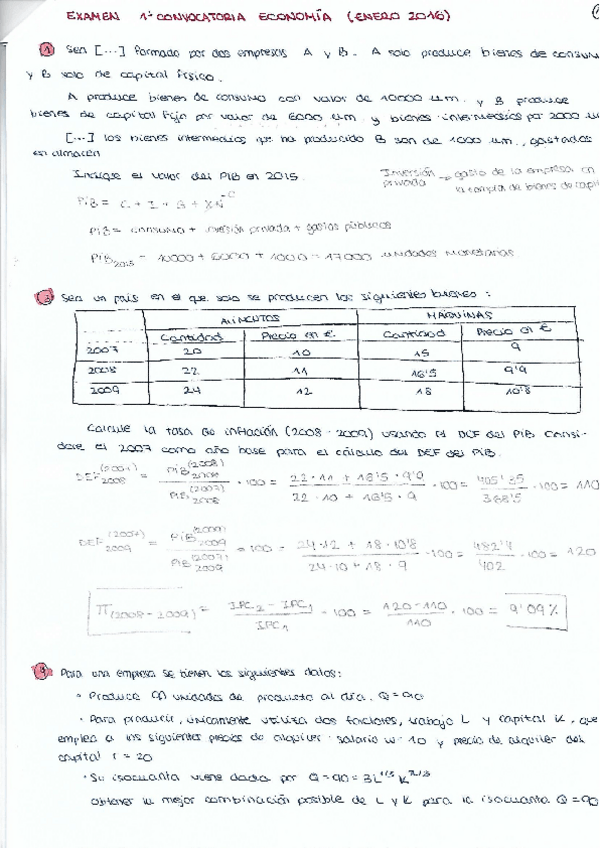 EXAMEN 1ª CONVOCATORIA ECONOMÍA (ENERO 2016)
1 Sea [...] formado por dos empresas A y B. A solo produce bienes de consumo
y B solo de capital físico.
A produce bienes de consumo con valor de 10000 u.m. y B produce
bienes de capital fijo por valor de 6000 u.m. y bienes intermedios por 2000 u.m
[...] los bienes intermedios que ha producido B son de 1000 u.m., gastados
en almacén
Indique el valor del PIB en 2015.
Inversión privada → gasto de la empresa en
la compra de bienes de capi
PiB = C + I + G + XN
PiB = consumo + inversión privada + gastos públicos
PiB2015 = 10000 + 6000 + 1000 = 17000 unidades monetarias
2 Sea un país en el que solo se producen los siguientes bienes:
ALIMENTOS MÁQUINAS
Cantidad Precio en € Cantidad Precio en €
2007 20 10 15 9
2008 22 11 16'5 9'9
2009 24 12 18 10'8
Calcule la tasa de inflación (2008-2009) usando el DEF del PIB. Consi-
dere el 2007 como año base para el cálculo del DEF del PIB.
DEF2008(2007) = PiB2008(2008) / PiB2008(2007) · 100 = 22·11 + 16'5·9'9 / 22·10 + 16'5·9 · 100 = 405'35 / 368'5 · 100 = 110
DEF2009(2007) = PiB2009(2009) / PiB2009(2007) = 100 = 24·12 + 18·10'8 / 24·10 + 18·9 · 100 = 482'4 / 402 · 100 = 120
π(2008-2009) = IPC2 - IPC1 / IPC1 · 100 = 120-110 / 110 · 100 = 9'09%
Para una empresa se tienen los siguientes datos:
· Produce 90 unidades de producto al día. Q=90
· Para producir, únicamente utiliza dos factores, trabajo L y capital K, que
emplea a los siguientes precios de alquiler: salario w=10 y precio de alquiler del
capital r=20
· Su isocuanta viene dada por Q=90=3L^1/3 K^2/3
Obtener la mejor combinación posible de L y K para la isocuanta Q=90